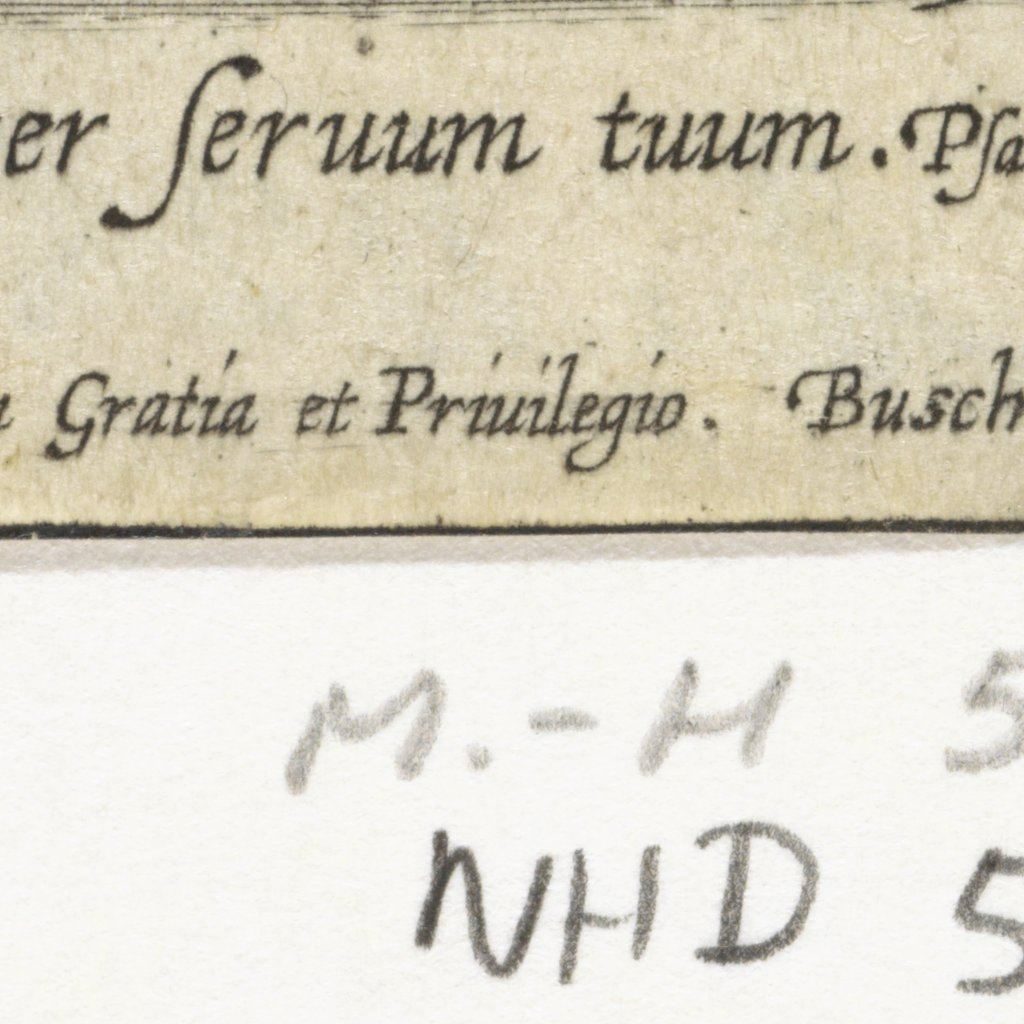 er ſeruum tuum. Pſa
Gratia et Priuilegio. Busch
M.-H 5
NHD 5